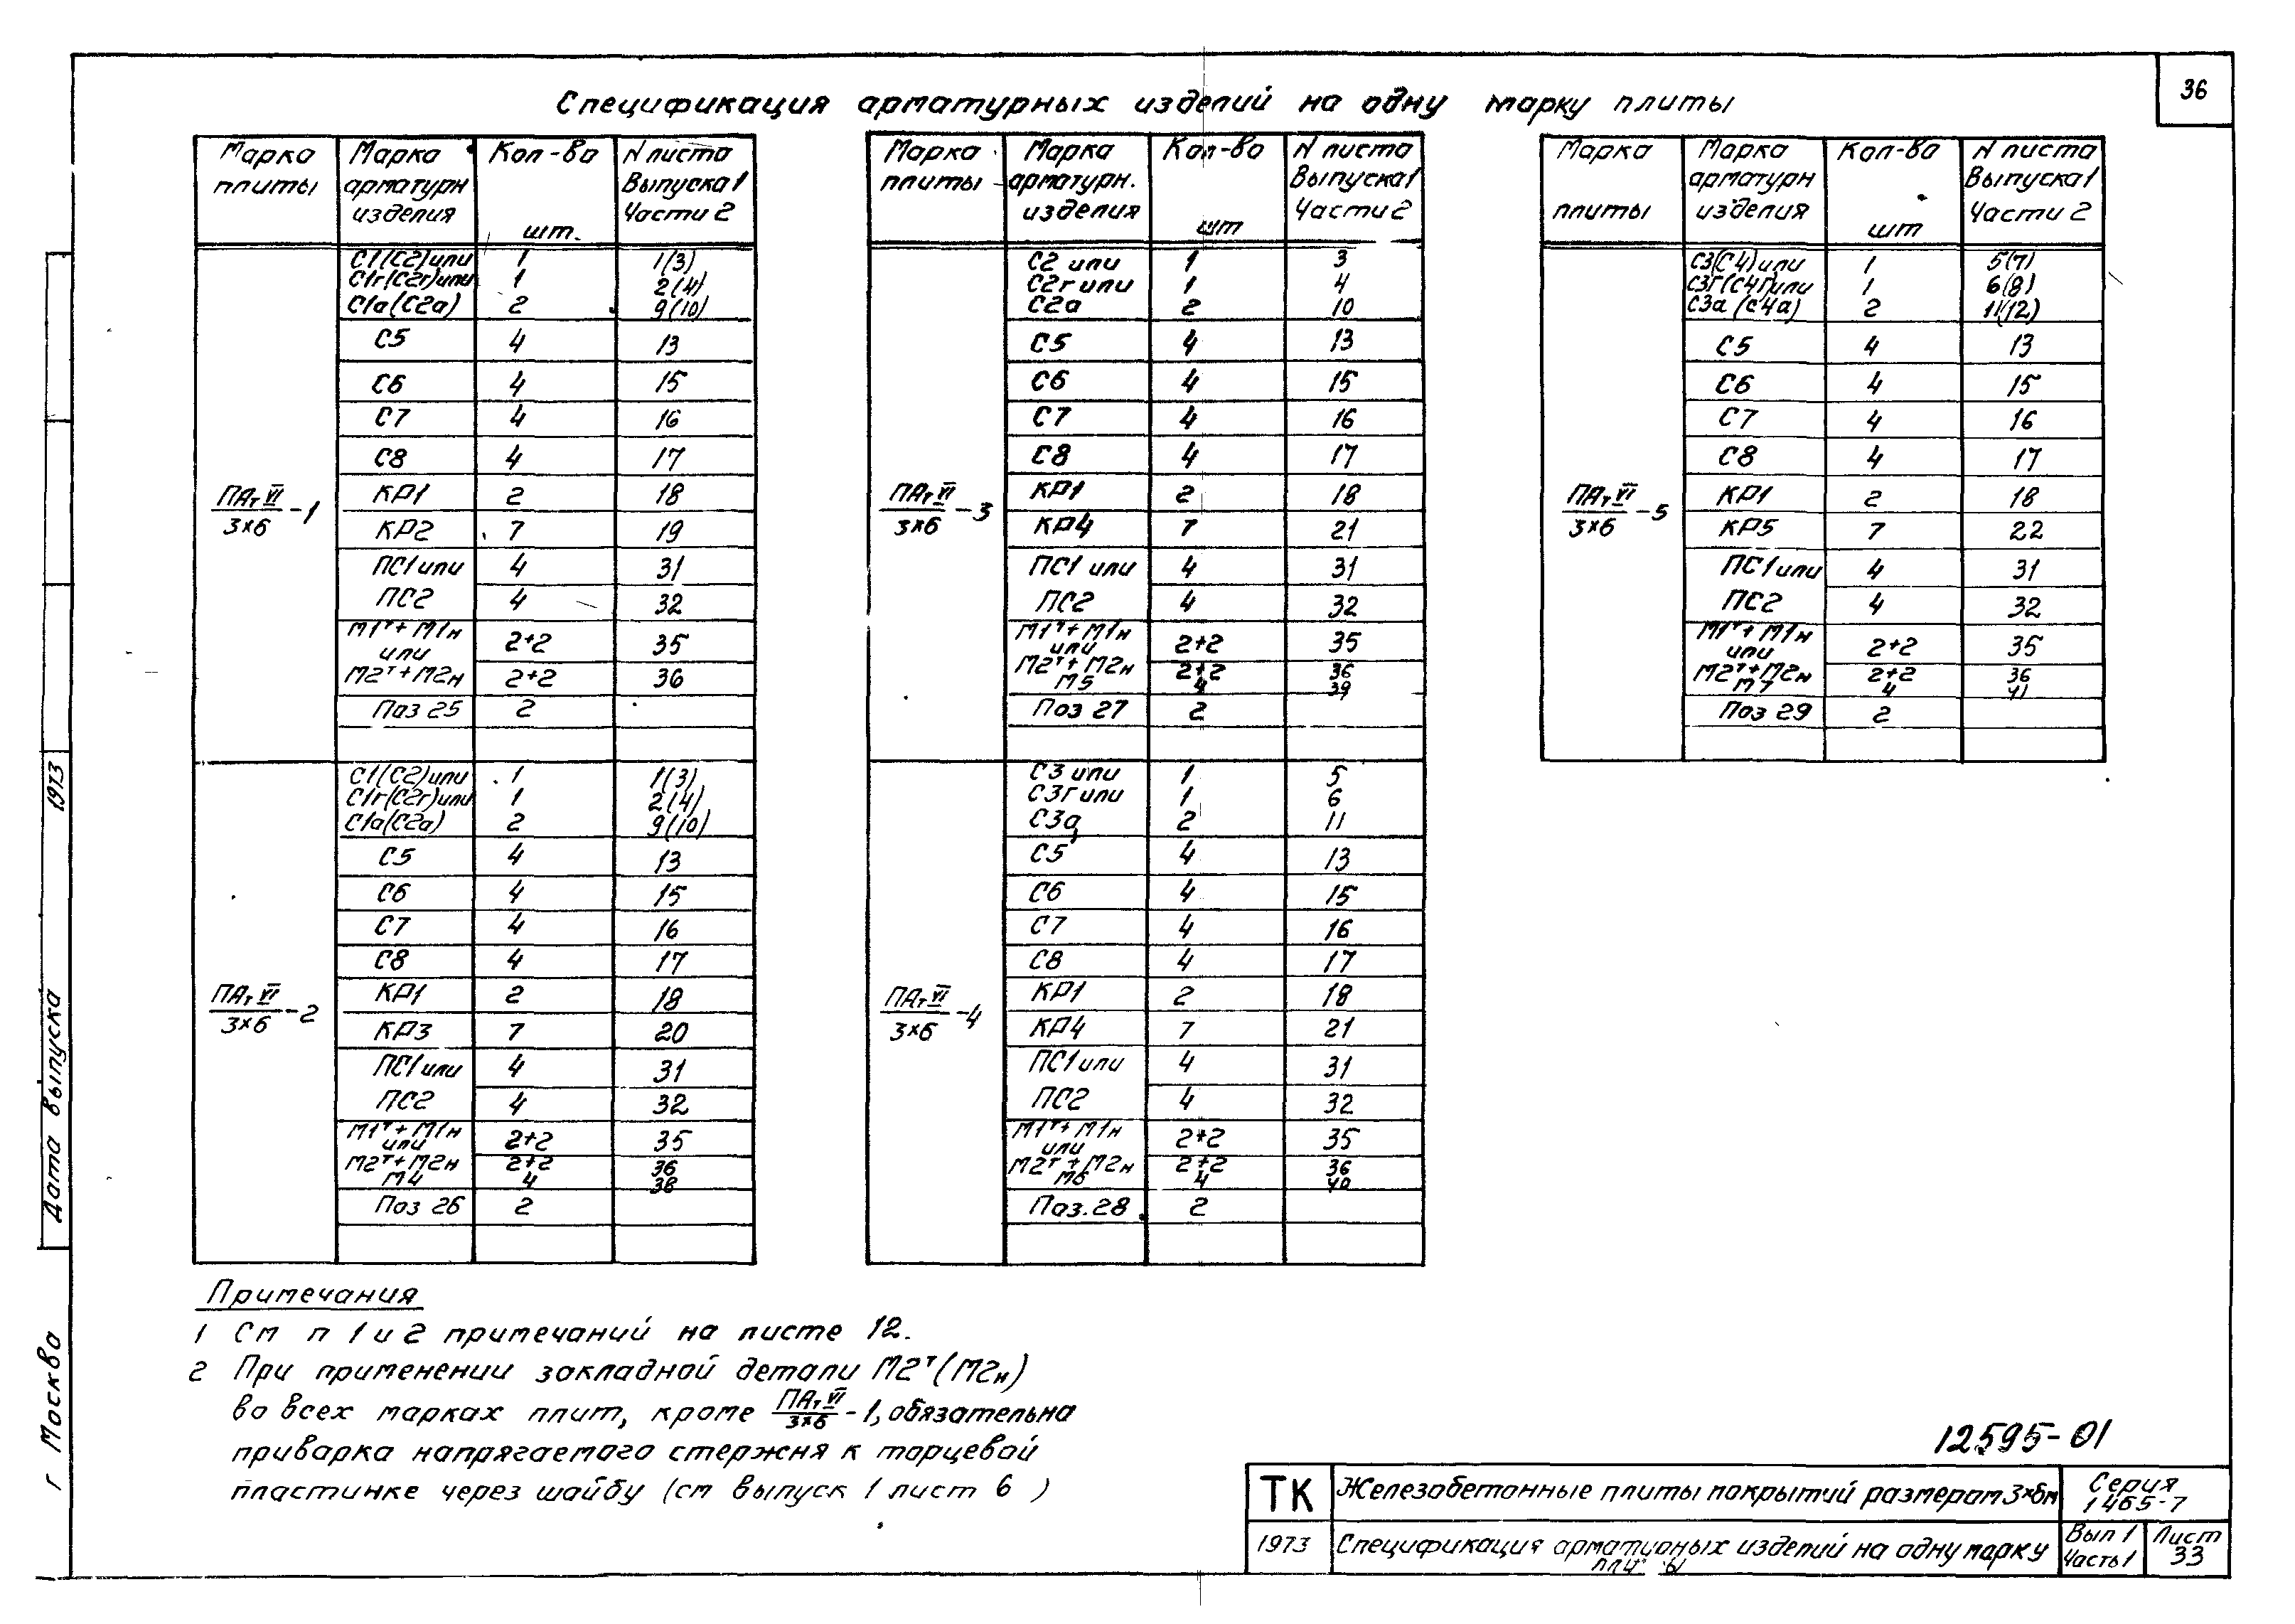 36
Спецификация арматурных изделий на одну марку плиты
Марка плиты | Марка арматурн изделия | Кол-во шт. | N листа Выпуска 1 Части 2
ПАтVI/3×6-1
С1(С2)или 1 1(3)
С1г(С2г)или 1 2(4)
С1а(С2а) 2 9(10)
С5 4 13
С6 4 15
С7 4 16
С8 4 17
КР1 2 18
КР2 7 19
ПС1 или 4 31
ПС2 4 32
М1т+М1н 2+2 35
или
М2т+М2н 2+2 36
Поз 25 2
ПАтVI/3×6-2
С1(С2)или 1 1(3)
С1г(С2г)или 1 2(4)
С1а(С2а) 2 9(10)
С5 4 13
С6 4 15
С7 4 16
С8 4 17
КР1 2 18
КР3 7 20
ПС1 или 4 31
ПС2 4 32
М1т+М1н 2+2 35
или
М2т+М2н 2+2 36
М4 4 38
Поз 26 2
Марка плиты | Марка арматурн. изделия | Кол-во шт | N листа Выпуска 1 Части 2
ПАтVI/3×6-3
С2 или 1 3
С2г или 1 4
С2а 2 10
С5 4 13
С6 4 15
С7 4 16
С8 4 17
КР1 2 18
КР4 7 21
ПС1 или 4 31
ПС2 4 32
М1т+М1н 2+2 35
или
М2т+М2н 2+2 36
М5 4 39
Поз 27 2
ПАтVI/3×6-4
С3 или 1 5
С3г или 1 6
С3а 2 11
С5 4 13
С6 4 15
С7 4 16
С8 4 17
КР1 2 18
КР4 7 21
ПС1 или 4 31
ПС2 4 32
М1т+М1н 2+2 35
или
М2т+М2н 2+2 36
М6 4 40
Поз.28 2
Марка плиты | Марка арматурн изделия | Кол-во шт | N листа Выпуска 1 Части 2
ПАтVI/3×6-5
С3(С4)или 1 5(7)
С3г(С4г)или 1 6(8)
С3а (С4а) 2 11(12)
С5 4 13
С6 4 15
С7 4 16
С8 4 17
КР1 2 18
КР5 7 22
ПС1 или 4 31
ПС2 4 32
М1т+М1н 2+2 35
или
М2т+М2н 2+2 36
М7 4 41
Поз 29 2
Примечания
1 См п 1 и 2 примечаний на листе 12.
2 При применении закладной детали М2т(М2н)
во всех марках плит, кроме ПАтVI/3×6-1, обязательна
приварка напрягаемого стержня к торцевой
пластинке через шайбу (см выпуск 1 лист 6 )
12595-01
ТК Железобетонные плиты покрытий размером 3×6м Серия 1 465-7
1973 Спецификация арматурных изделий на одну марку плиты Вып 1 Часть 1 Лист 33
г Москва Дата выпуска 1973